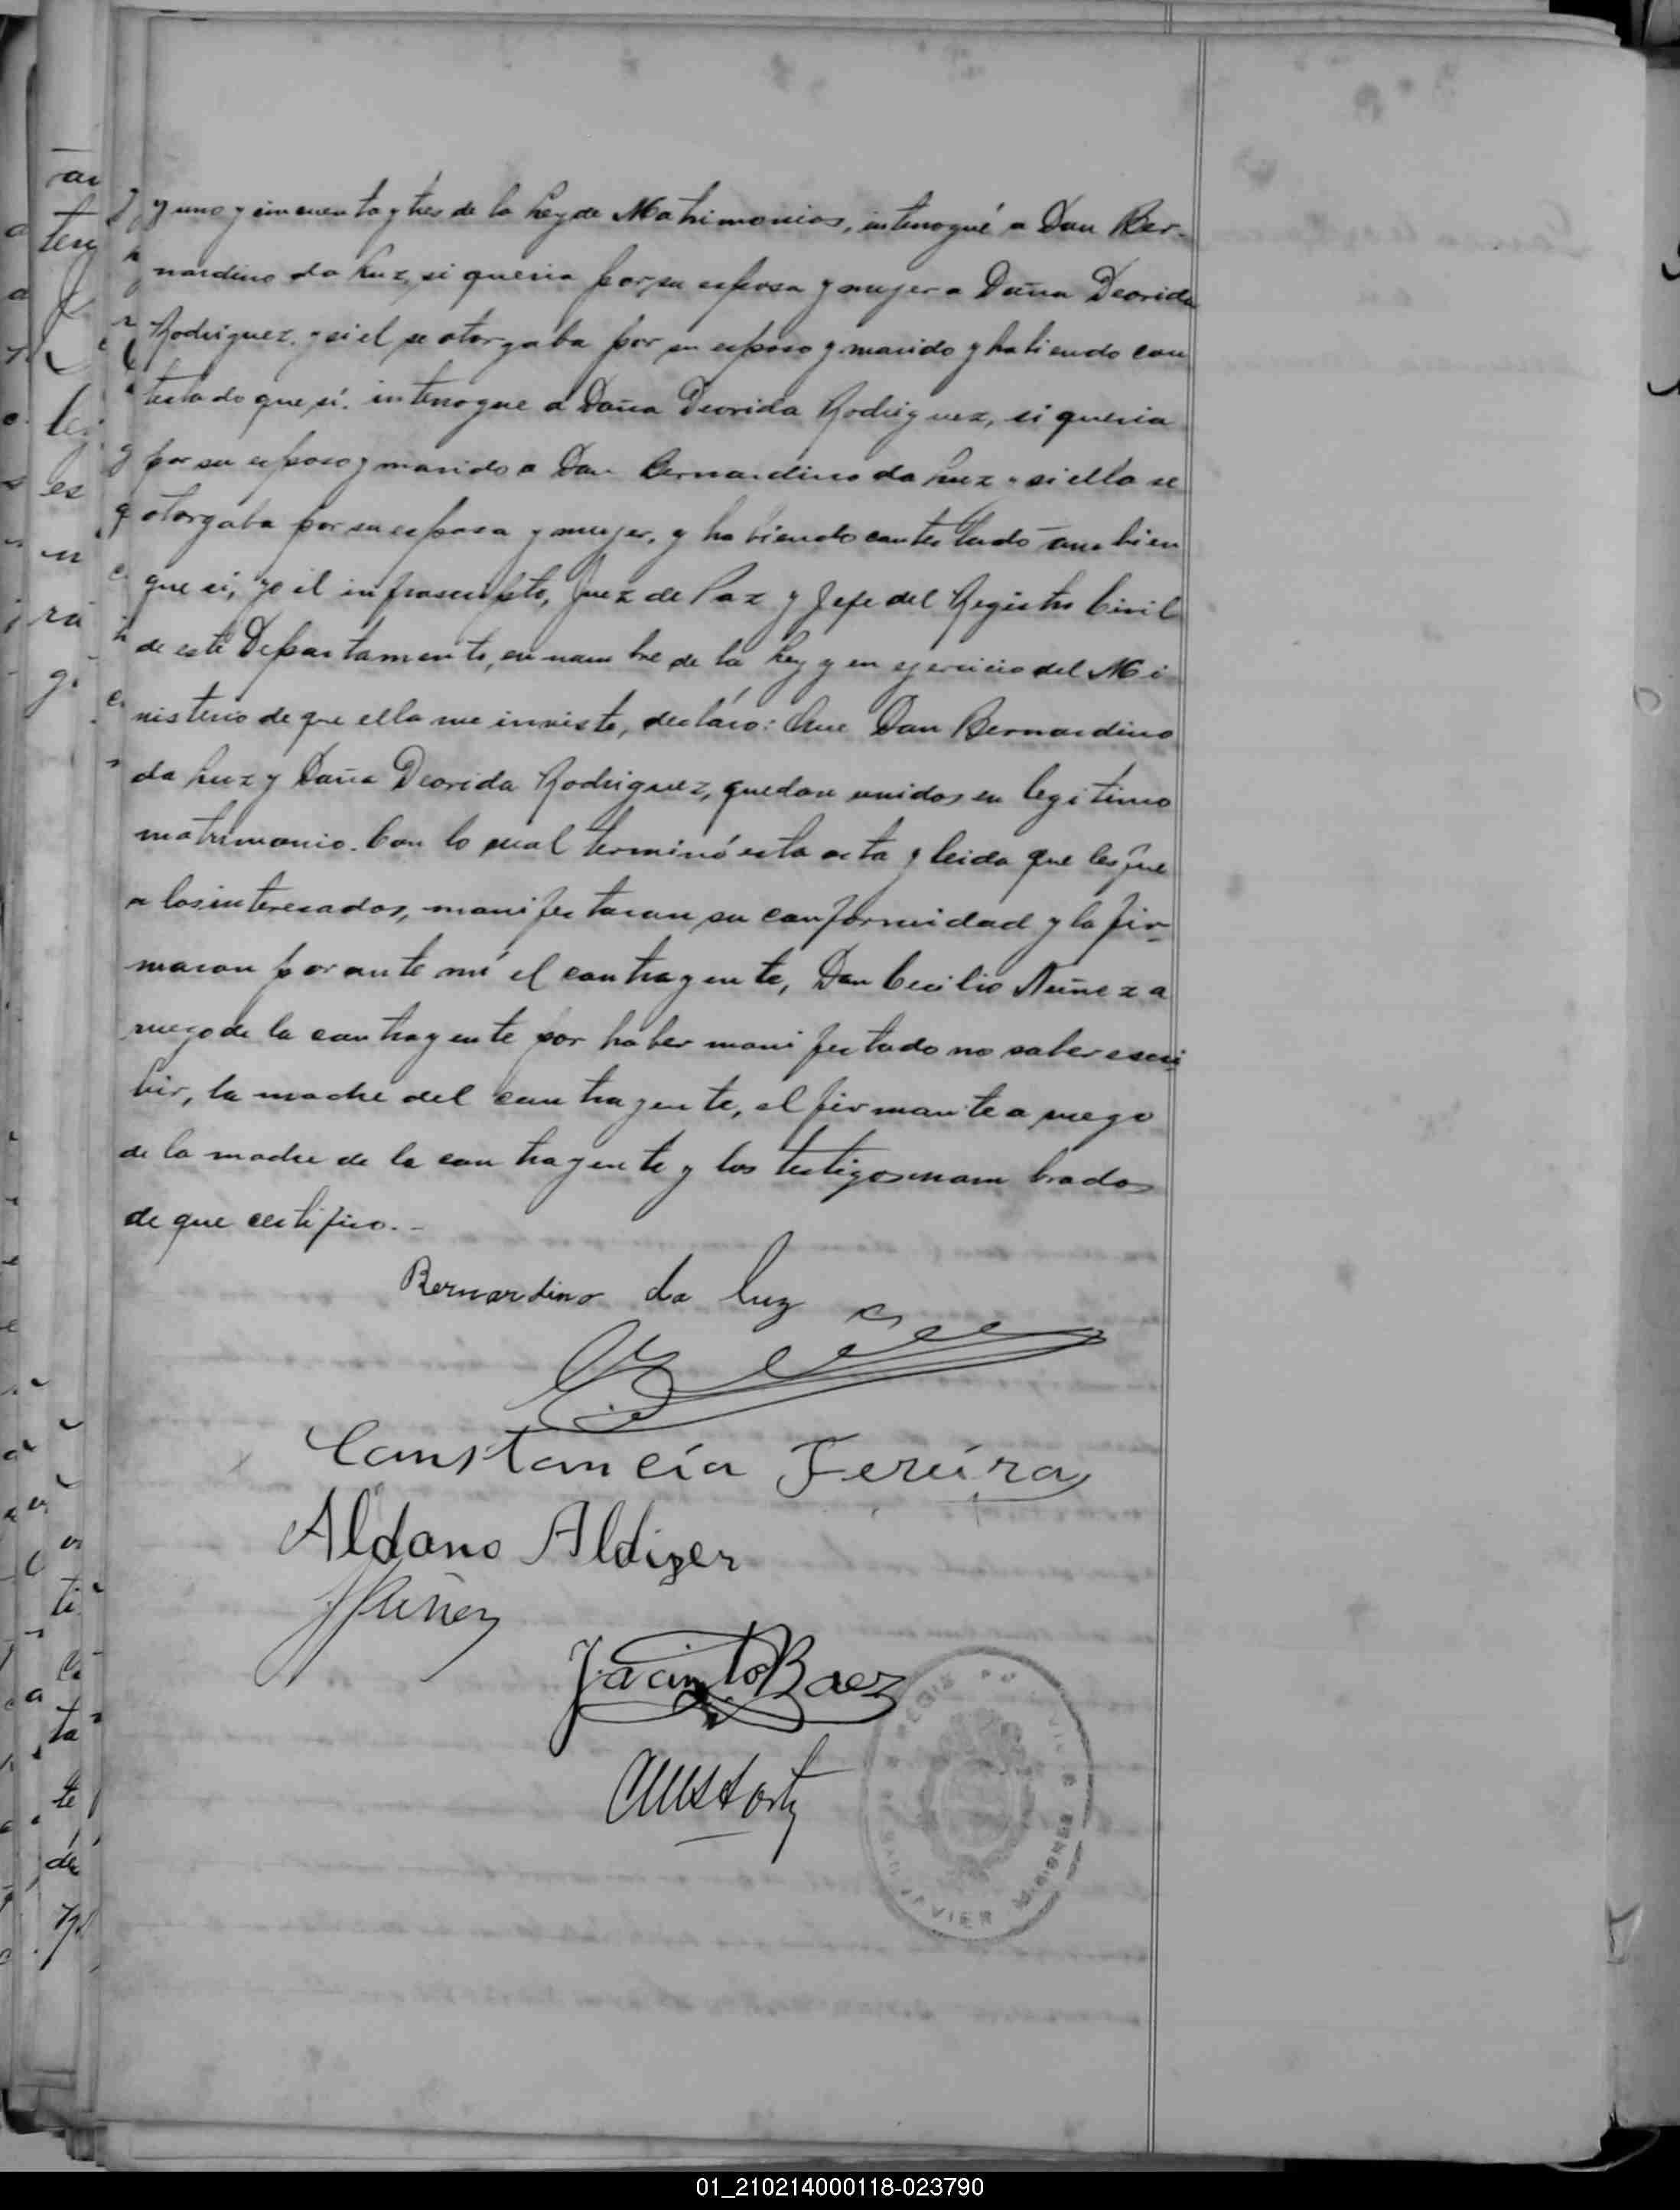 y uno y cincuenta y tres de la Ley de Matrimonios, interrogué a Don Ber-
nardino da Luz, si queria por su esposa y mujer a Doña Deorida
Rodriguez, y si el se otorgaba por su esposo y marido y habiendo con
testado que sí. interrogue a Doña Deorida Rodriguez, si queria
por su esposo y marido a Don Bernardino da Luz y si ella se
otorgaba por su esposa y mujer, y habiendo contestado tambien
que si, yo el infrascripto, Juez de Paz y Jefe del Registro Civil
de este Departamento, en nombre de la Ley y en ejercicio del Mi
nisterio de que ella me inviste, decláro: Que Don Bernardino
da Luz y Doña Deorida Rodriguez, quedan unidos en legitimo
matrimonio. Con lo cual terminó esta acta y leida que les fue
a los interesados, manifestaron su conformidad y la fir-
maron por ante mí el contrayente, Don Cecilio Nuñez a
ruego de la contrayente por haber manifestado no saber escri
bir, la madre del contrayente, el firmante a ruego
de la madre de la contrayente y los testigos nombrados
de que certifico.-
Bernardino da Luz
Constancia Fereira
Aldano Aldizer
Nuñez
Jacinto Baez
REGIS CIVIL
SAN JAVIER MISIONES
01_210214000118-023790